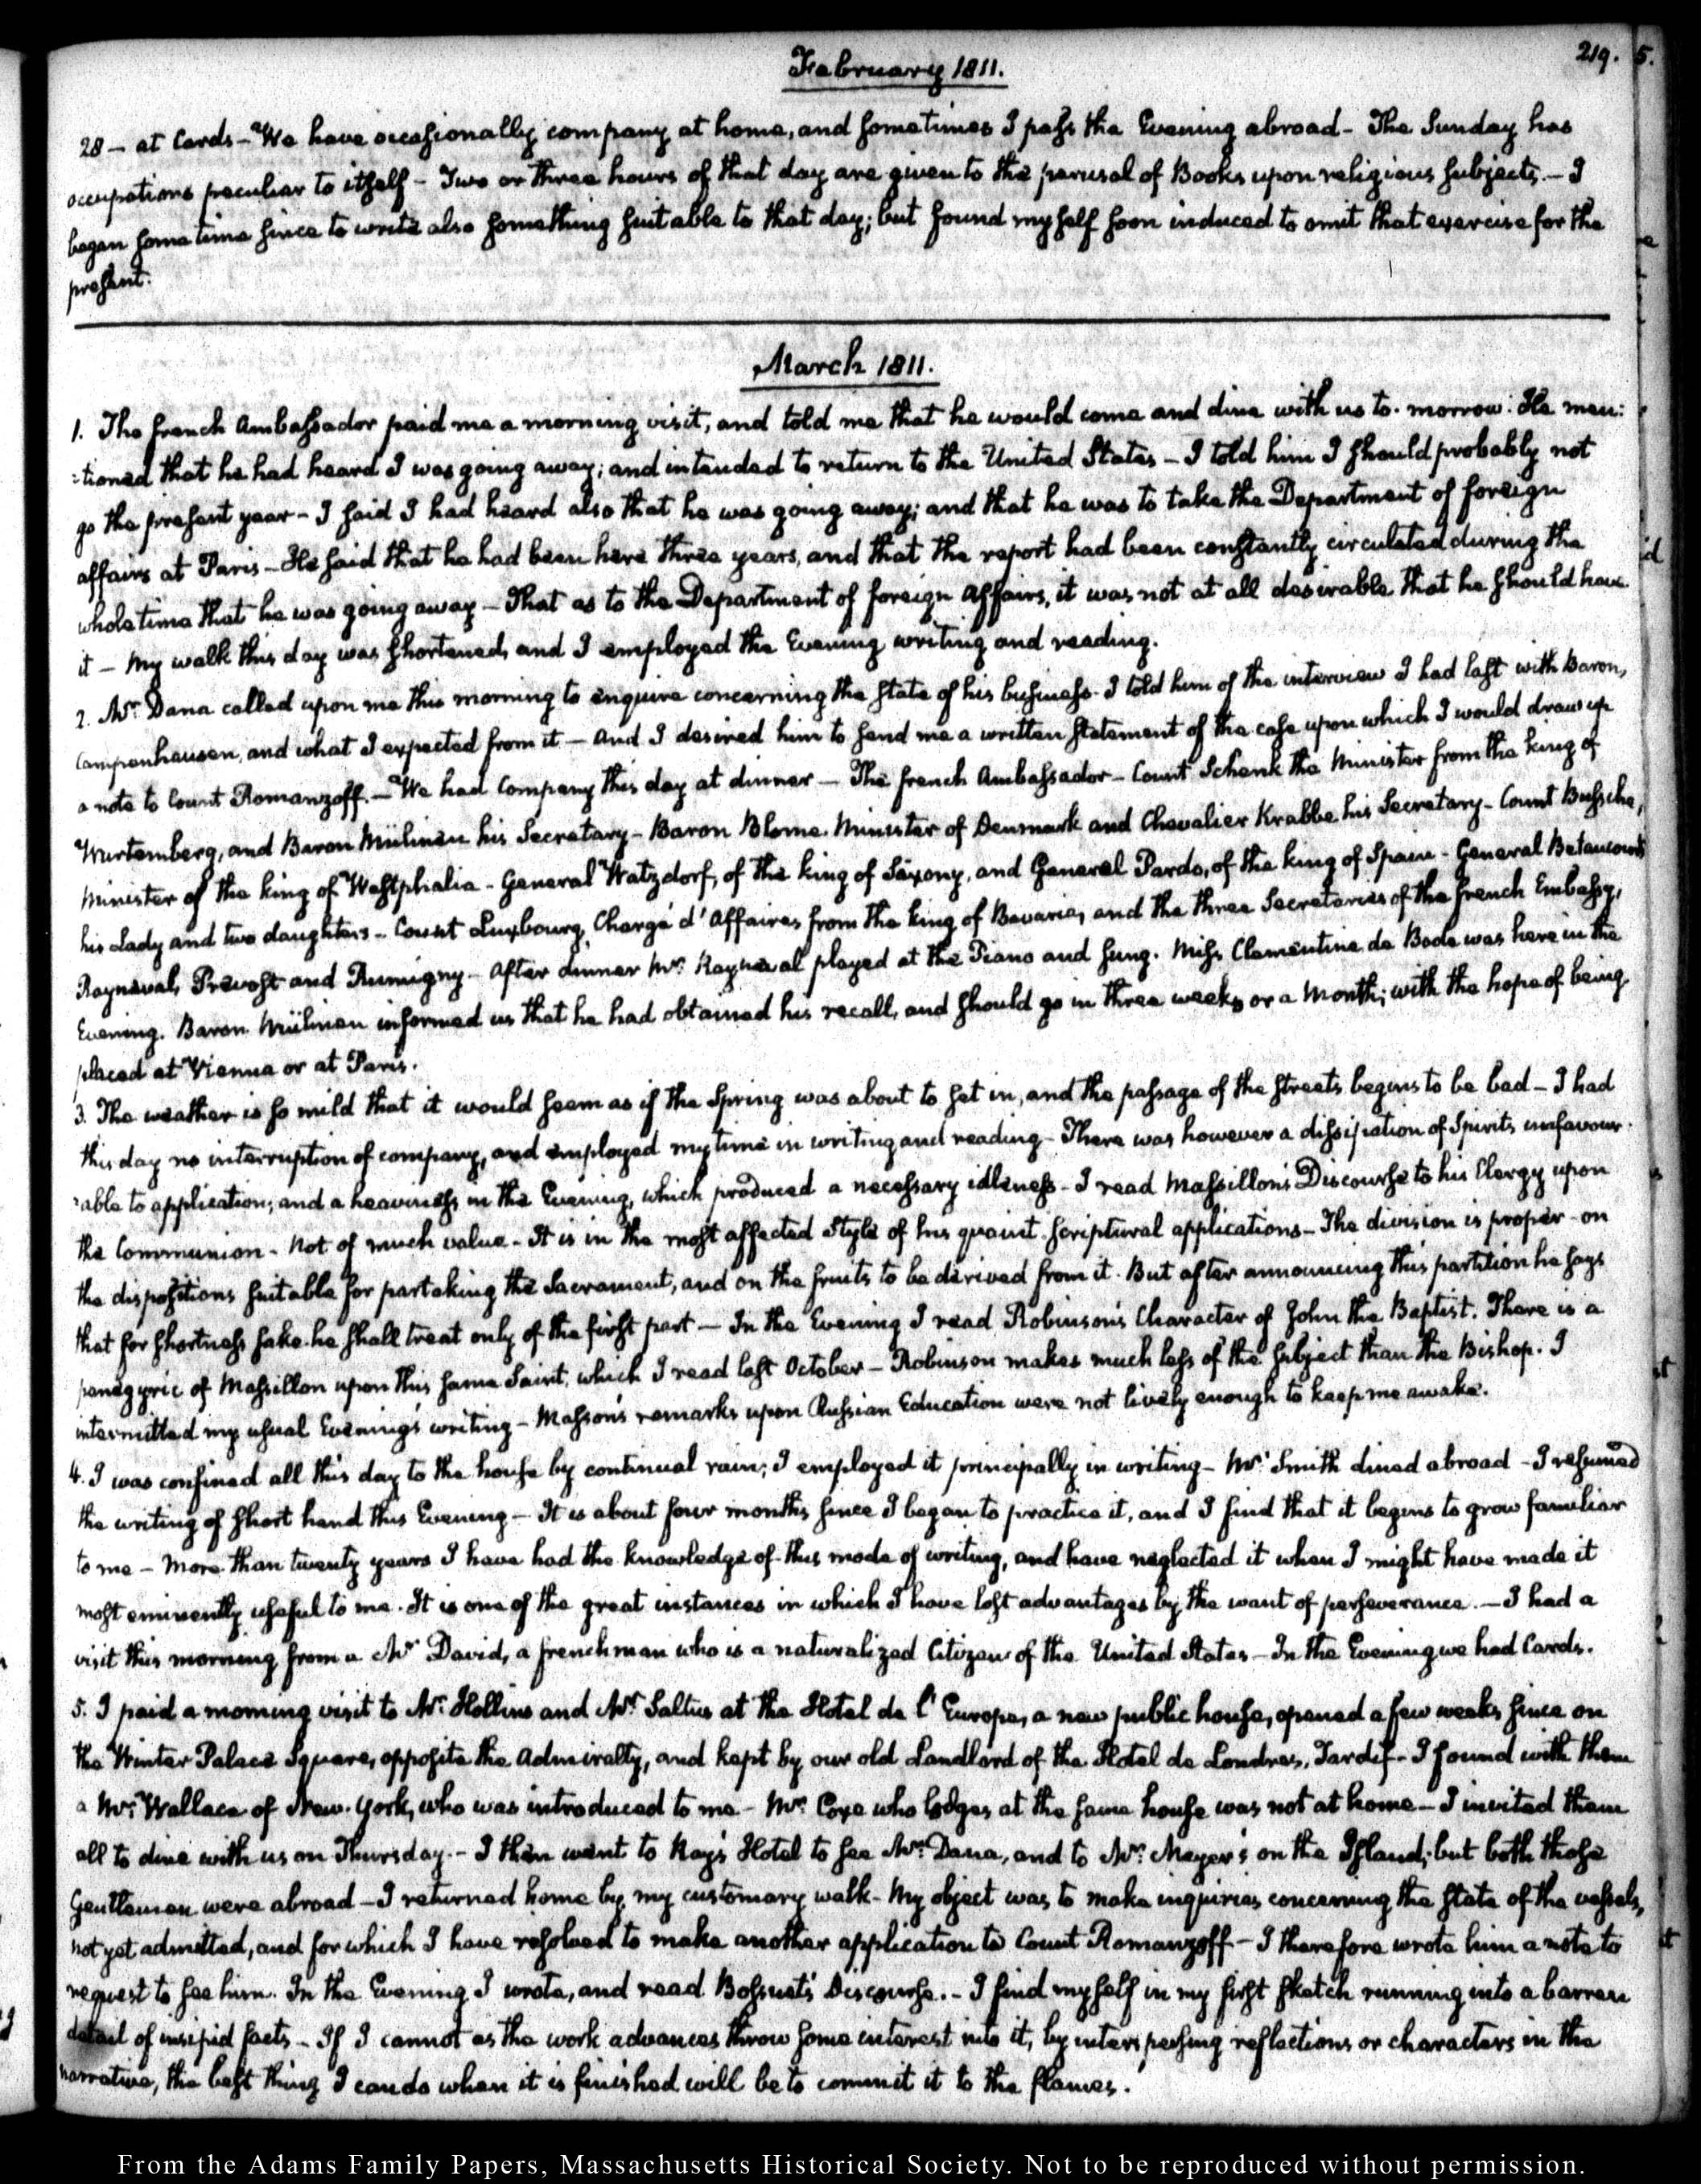 219.
February 1811.
28 – at Cards – We have occasionally company at home, and sometimes I pass the Evening abroad – The Sunday has
occupations peculiar to itself – Two or three hours of that day are given to the perusal of Books upon religious subjects. – I
began sometime since to write also something suitable to that day; but found myself soon induced to omit that exercise for the
present.
March 1811.
1. The french Ambassador paid me a morning visit, and told me that he would come and dine with us to-morrow. He men:
:tioned that he had heard I was going away; and intended to return to the United States – I told him I should probably not
go the present year – I said I had heard also that he was going away; and that he was to take the Department of foreign
affairs at Paris – He said that he had been here three years, and that the report had been constantly circulated during the
whole time that he was going away – That as to the Department of foreign Affairs, it was not at all desirable that he should have
it – My walk this day was shortened, and I employed the Evening writing and reading.
2. Mr. Dana called upon me this morning to enquire concerning the state of his business. I told him of the interview I had last with Baron,
Campenhausen, and what I expected from it – And I desired him to send me a written statement of the case upon which I would draw up
a note to Count Romanzoff. – We had Company this day at dinner – The french Ambassador – Count Schenk the Minister from the king of
Wurtemberg, and Baron Mülinen his Secretary – Baron Blome Minister of Denmark and Chevalier Krabbe his Secretary – Count Bussche,
Minister of the king of Westphalia – General Watzdorf, of the king of Saxony, and General Pardo, of the king of Spain – General Betancourt
his Lady and two daughters – Count Luxbourg, Chargé d'Affaires from the king of Bavaria, and the three Secretaries of the french Embassy,
Raynéval, Prevost and Rumigny – After dinner Mr. Rayneval played at the Piano and sung. Miss Clementina de Bode was here in the
Evening. Baron Mülinen informed us that he had obtained his recall, and should go in three weeks or a Month; with the hope of being
placed at Vienna or at Paris.
3. The weather is so mild that it would seem as if the Spring was about to set in, and the passage of the streets begins to be bad – I had
this day no interruption of company, and employed my time in writing and reading – There was however a dissipation of Spirits unfavour-
:able to application; and a heaviness in the Evening, which produced a necessary idleness – I read Massillon's Discourse to his Clergy upon
the Communion – Not of much value – It is in the most affected Style of his quaint scriptural applications – The division is proper – on
the dispositions suitable for partaking the Sacrament, and on the fruits to be derived from it. But after announcing this partition he says
that for shortness sake he shall treat only of the first part – In the Evening I read Robinson's Character of John the Baptist. There is a
panegyric of Massillon upon this same Saint, which I read last October – Robinson makes much less of the subject than the Bishop. I
intermitted my usual Evening's writing – Masson's remarks upon Russian Education were not lively enough to keep me awake.
4. I was confined all this day to the house by continual rain; I employed it principally in writing – Mr. Smith dined abroad – I resumed
the writing of short hand this Evening – It is about four months since I began to practice it, and I find that it begins to grow familiar
to me – More than twenty years I have had the knowledge of this mode of writing, and have neglected it when I might have made it
most eminently useful to me. It is one of the great instances in which I have lost advantages by the want of perseverance. – I had a
visit this morning from a Mr. David, a frenchman who is a naturalized Citizen of the United States – In the Evening we had Cards.
5. I paid a morning visit to Mr. Hollins and Mr. Saltus at the Hotel de l'Europe, a new public house, opened a few weeks since on
the Winter Palace Square, opposite the Admiralty, and kept by our old Landlord of the Hotel de Londres, Tardif – I found with them
a Mr. Wallace of New-York, who was introduced to me – Mr. Coxe who lodges at the same house was not at home – I invited them
all to dine with us on Thursday. – I then went to Kay's Hotel to see Mr. Dana, and to Mr. Meyer's on the Island; but both those
Gentlemen were abroad – I returned home by my customary walk – My object was to make inquiries concerning the state of the vessels,
not yet admitted, and for which I have resolved to make another application to Count Romanzoff – I therefore wrote him a note to
request to see him. In the Evening I wrote, and read Bossuet's Discourse. – I find myself in my first sketch running into a barren
detail of insipid facts – If I cannot as the work advances throw some interest into it, by interspersing reflections or characters in the
narrative, the best thing I can do when it is finished will be to commit it to the flames.
From the Adams Family Papers, Massachusetts Historical Society. Not to be reproduced without permission.